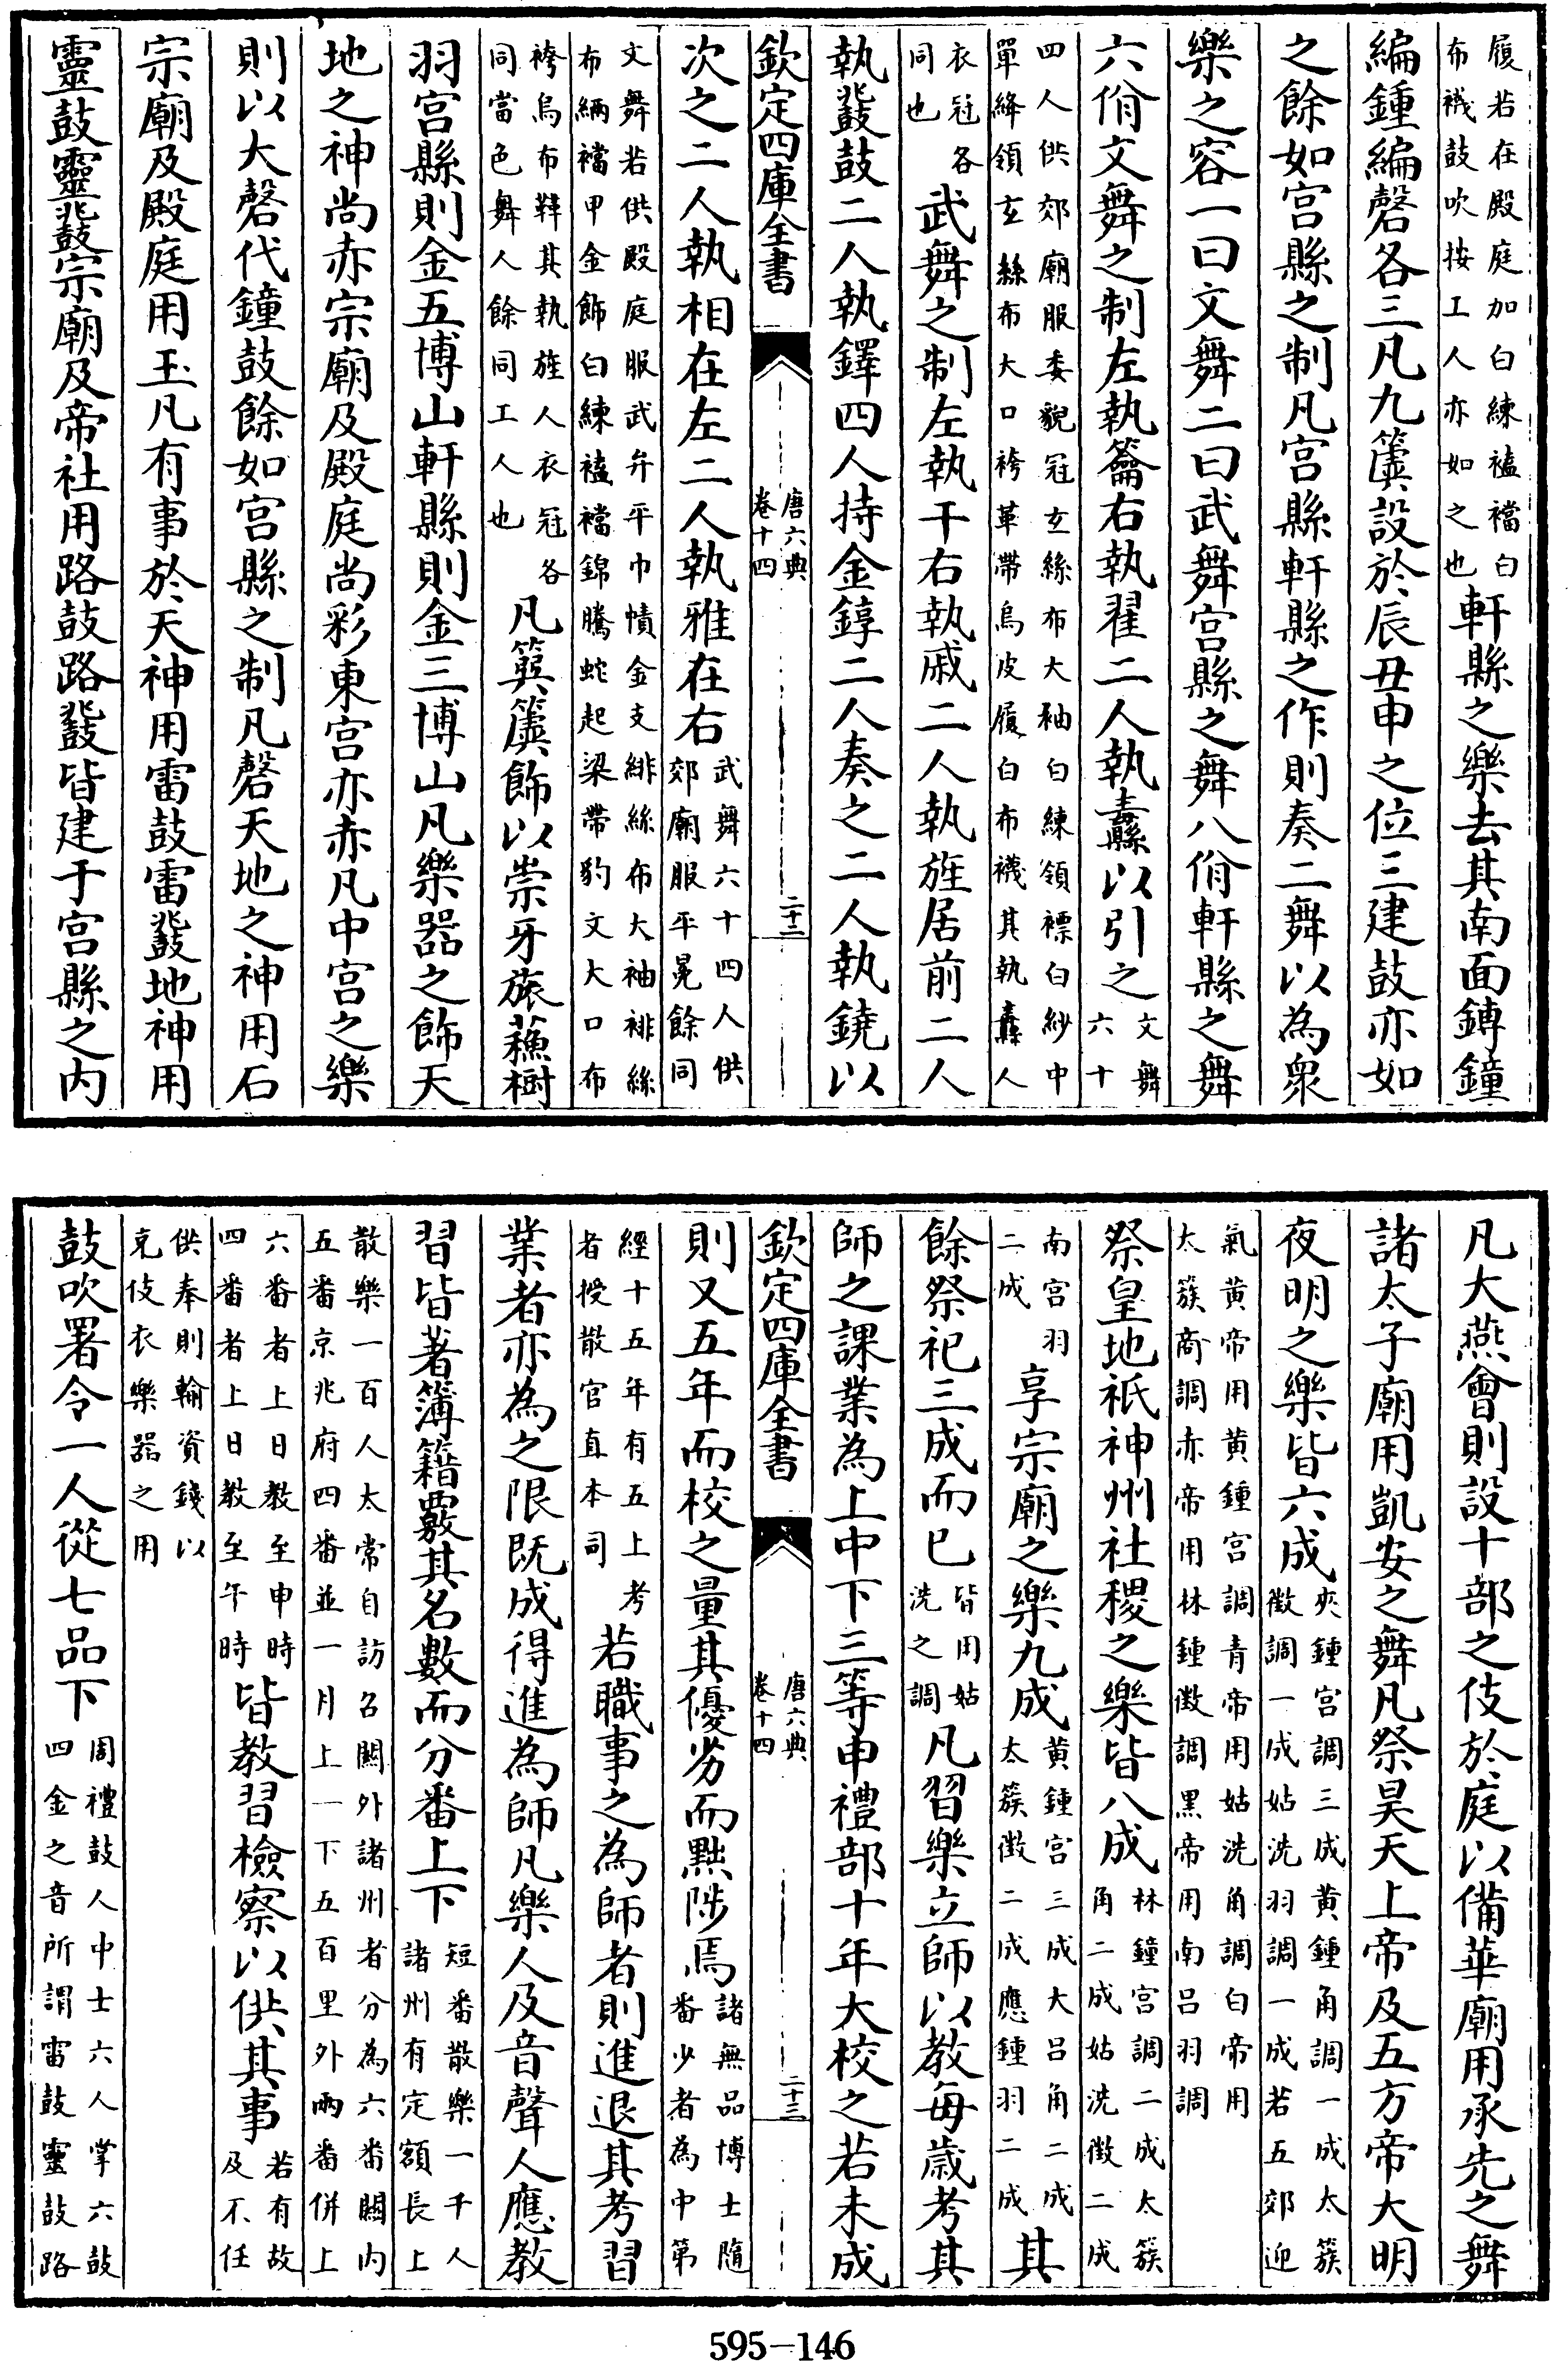 履若在殿庭加白練䙆襠白
布襪鼓吹按工人亦如之也
軒縣之樂去其南面鎛鐘
編鍾編磬各三凡九簴設於辰丑申之位三建鼓亦如
之餘如宫縣之制凡宫縣軒縣之作則奏二舞以為衆
樂之容一曰文舞二曰武舞宫縣之舞八佾軒縣之舞
六佾文舞之制左執籥右執翟二人執纛以引之
文舞
六十
四人供郊廟服委貌冠玄絲布大袖白練領褾白紗中
單絳領玄絲布大口袴革帶烏皮履白布襪其執纛人
衣冠各
同也
武舞之制左執干右執戚二人執旌居前二人
執鼗鼓二人執鐸四人持金錞二人奏之二人執鐃以
欽定四庫全書
唐六典
卷十四
二十二
次之二人執相在左二人執雅在右
武舞六十四人供
郊廟服平冕餘同
文舞若供殿庭服武弁平巾幘金支緋絲布大袖裶絲
布緉襠甲金飾白練䙆襠錦騰蛇起梁帶豹文大口布
袴烏布鞾其執旌人衣冠各
同當色舞人餘同工人也
凡簨簴飾以崇牙旒蘓樹
羽宫縣則金五博山軒縣則金三博山凡樂器之飾天
地之神尚赤宗廟及殿庭尚彩東宫亦赤凡中宫之樂
則以大磬代鐘鼓餘如宫縣之制凡磬天地之神用石
宗廟及殿庭用玉凡有事於天神用雷鼓雷鼗地神用
靈鼓靈鼗宗廟及帝社用路鼓路鼗皆建于宫縣之内
凡大燕會則設十部之伎於庭以備華廟用承先之舞
諸太子廟用凱安之舞凡祭昊天上帝及五方帝大明
夜明之樂皆六成
夾鍾宫調三成黄鍾角調一成太簇
徵調一成姑洗羽調一成若五郊迎
氣黄帝用黄鍾宫調青帝用姑洗角調白帝用
太簇商調赤帝用林鍾徵調黑帝用南吕羽調
祭皇地祇神州社稷之樂皆八成
林鐘宫調二成太簇
角二成姑洗徵二成
南宫羽
二成
享宗廟之樂九成
黄鍾宫三成大吕角二成
太簇徵二成應鍾羽二成
其
餘祭祀三成而已
皆用姑
洗之調
凡習樂立師以教每歲考其
師之課業為上中下三等申禮部十年大校之若未成
欽定四庫全書
唐六典
卷十四
二十三
則又五年而校之量其優劣而黜陟焉
諸無品博士隨
番少者為中第
經十五年有五上考
者授散官直本司
若職事之為師者則進退其考習
業者亦為之限既成得進為師凡樂人及音聲人應教
習皆著簿籍覈其名數而分番上下
短番散樂一千人
諸州有定額長上
散樂一百人太常自訪召關外諸州者分為六番關内
五番京兆府四番並一月上一下五百里外兩番併上
六番者上日教至申時
四番者上日教至午時
皆教習檢察以供其事
若有故
及不任
供奉則輸資錢以
充伎衣樂器之用
鼓吹署令一人從七品下
周禮鼓人中士六人掌六鼓
四金之音所謂雷鼓靈鼓路
595-146